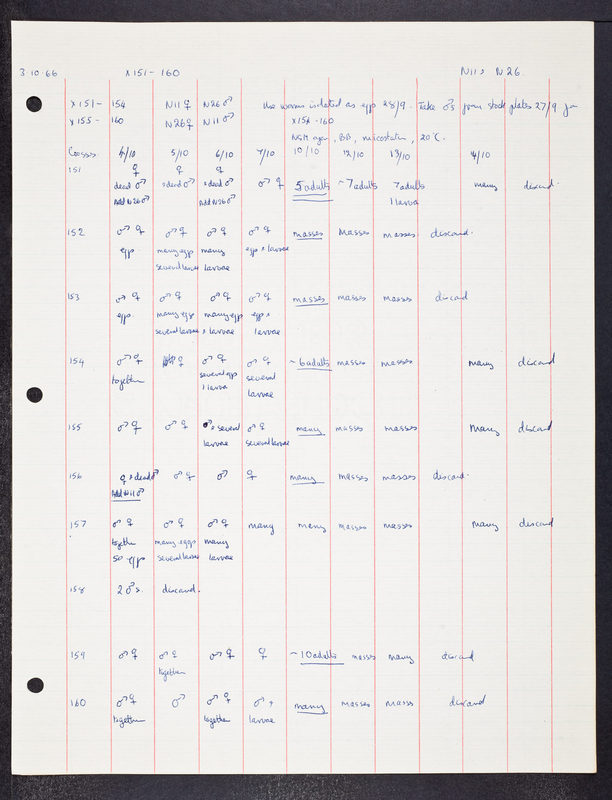 3.10.66 X151-160 N11 & N26.
X151- 154 N11♀ N26♂ Use worms isolated as eggs 28/9. Take ♂s from stock plates 27/9 for
X155- 160 N26♀ N11♂ X151-160
NGM agar, BB, mycostatin, 20°C.
Crosses 4/10 5/10 6/10 7/10 10/10 12/10 13/10 14/10
151 ♀ ♀ ♀
dead ♂ & dead ♂ & dead ♂ ♂ ♀ 5 adults ~7 adults 7 adults many discard.
Add N26♂ Add N26♂ 1 larva
152 ♂ ♀ ♂ ♀ ♂ ♀ ♂ ♀ masses masses masses discard.
eggs many eggs many eggs & larvae
several larvae larvae
153 ♂ ♀ ♂ ♀ ♂ ♀ ♂ ♀ masses masses masses discard
eggs many eggs many eggs eggs &
several larvae & larvae larvae
154 ♂ ♀ ♀ ♂ ♀ ♂ ♀ ~6 adults masses masses many discard
together several eggs several
1 larva larvae
155 ♂ ♀ ♂ ♀ & several ♂ ♀ many masses masses many discard
larvae several larvae
156 ♀ & dead ♂ ♂ ♀ ♂ ♀ many masses masses discard.
Add N11♂
157 ♂ ♀ ♂ ♀ ♂ ♀ many many masses masses many discard
together many eggs many
50 eggs several larvae larvae
158 2 ♂s. discard.
159 ♂ ♀ ♂ ♀ ♂ ♀ ♀ ~10 adults masses many discard
together
160 ♂ ♀ ♂ ♂ ♀ ♂ & many masses masses discard
together together larvae